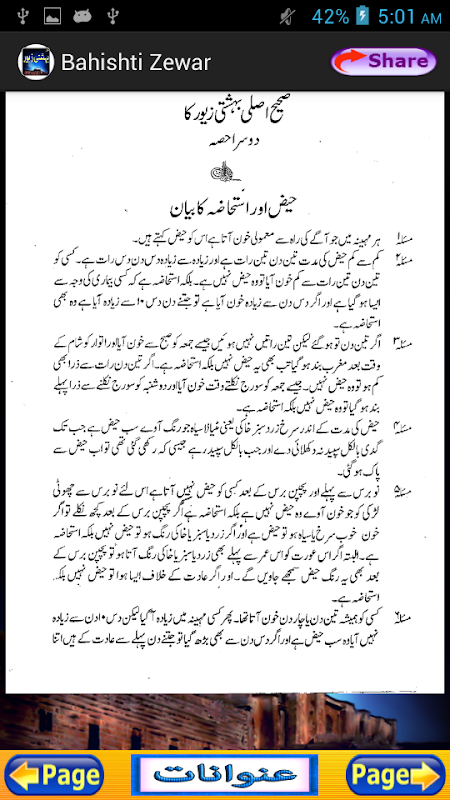 42% 5:01 AM
Bahishti Zewar
Share
صحیح اصلی بہشتی زیور کا
دوسرا حصہ
حیض اور استحاضہ کا بیان
مسئلہ۱ ہر مہینہ میں جو آگے کی راہ سے معمولی خون آتا ہے اس کو حیض کہتے ہیں۔
مسئلہ۲ کم سے کم حیض کی مدت تین دن تین رات ہے اور زیادہ سے زیادہ دس دن دس رات ہے۔ کسی کو
تین دن تین رات سے کم خون آیا تو وہ حیض نہیں ہے۔ بلکہ استحاضہ ہے کہ کسی بیماری کی وجہ سے
ایسا ہو گیا ہے اور اگر دس دن سے زیادہ خون آیا ہے تو جتنے دن دس ۱۰ سے زیادہ آیا ہے وہ بھی
استحاضہ ہے۔
مسئلہ۳ اگر تین دن تو ہو گئے لیکن تین راتیں نہیں ہوئیں جیسے جمعہ کو صبح سے خون آیا اور اتوار کو شام کے
وقت بعد مغرب بند ہو گیا تب بھی یہ حیض نہیں بلکہ استحاضہ ہے۔ اگر تین دن رات سے ذرا بھی
کم ہو تو وہ حیض نہیں۔ جیسے جمعہ کو سورج نکلتے وقت خون آیا اور دوشنبہ کو سورج نکلنے سے ذرا پہلے
بند ہو گیا تو وہ حیض نہیں بلکہ استحاضہ ہے۔
مسئلہ۴ حیض کی مدت کے اندر سرخ زرد سبز خاکی یعنی مٹیالا سیاہ جو رنگ آوے سب حیض ہے جب تک
گدی بالکل سپید نہ دکھلائی دے اور جب بالکل سپید رہے جیسی کہ رکھی گئی تھی تو اب حیض سے
پاک ہو گئی۔
مسئلہ۵ نو برس سے پہلے اور پچپن برس کے بعد کسی کو حیض نہیں آتا ہے اس لئے نو برس سے چھوٹی
لڑکی کو جو خون آوے وہ حیض نہیں ہے بلکہ استحاضہ ہے اگر پچپن برس کے بعد کچھ نکلے تو اگر
خون خوب سرخ یا سیاہ ہو تو حیض ہے اور اگر زرد یا سبز یا خاکی رنگ ہو تو حیض نہیں بلکہ استحاضہ
ہے۔ البتہ اگر اس عورت کو اس عمر سے پہلے بھی زرد یا سبز یا خاکی رنگ آتا ہو تو پچپن برس کے
بعد بھی یہ رنگ حیض سمجھے جاویں گے۔ اور اگر عادت کے خلاف ایسا ہوا تو حیض نہیں بلکہ
استحاضہ ہے۔
مسئلہ۶ کسی کو ہمیشہ تین دن یا چار دن خون آتا تھا۔ پھر کسی مہینہ میں زیادہ آ گیا لیکن دس ۱۰ دن سے زیادہ
نہیں آیا وہ سب حیض ہے اور اگر دس دن سے بھی بڑھ گیا تو جتنے دن پہلے سے عادت کے ہیں اتنا
Page عنوانات Page